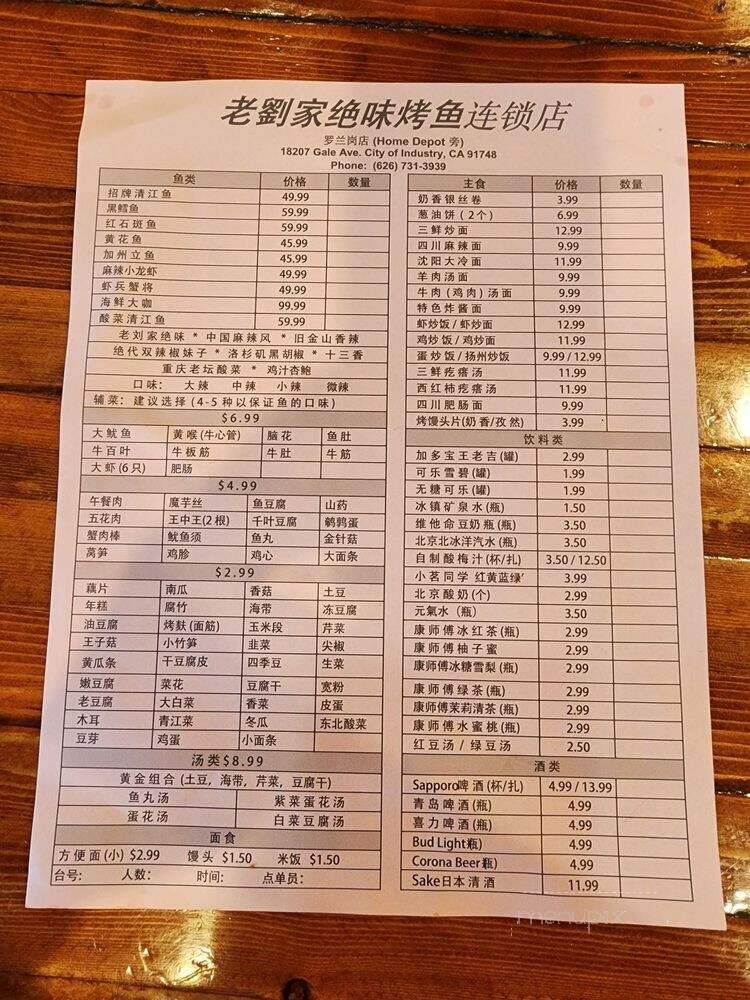 老劉家绝味烤鱼连锁店
罗兰岗店 (Home Depot 旁)
18207 Gale Ave. City of Industry, CA 91748
Phone: (626) 731-3939
鱼类 价格 数量
招牌清江鱼 49.99
黑鳕鱼 59.99
红石斑鱼 59.99
黄花鱼 45.99
加州立鱼 45.99
麻辣小龙虾 49.99
虾兵蟹将 49.99
海鲜大咖 99.99
酸菜清江鱼 59.99
老刘家绝味 * 中国麻辣风 * 旧金山香辣
绝代双辣椒妹子 * 洛杉矶黑胡椒 * 十三香
重庆老坛酸菜 * 鸡汁杏鲍
口味: 大辣 中辣 小辣 微辣
辅菜: 建议选择 (4-5 种以保证鱼的口味)
$6.99
大鱿鱼 黄喉 (牛心管) 脑花 鱼肚
牛百叶 牛板筋 牛肚 牛筋
大虾 (6 只) 肥肠
$4.99
午餐肉 魔芋丝 鱼豆腐 山药
五花肉 王中王(2 根) 千叶豆腐 鹌鹑蛋
蟹肉棒 鱿鱼须 鱼丸 金针菇
莴笋 鸡胗 鸡心 大面条
$2.99
藕片 南瓜 香菇 土豆
年糕 腐竹 海带 冻豆腐
油豆腐 烤麸 (面筋) 玉米段 芹菜
王子菇 小竹笋 韭菜 尖椒
黄瓜条 干豆腐皮 四季豆 生菜
嫩豆腐 菜花 豆腐干 宽粉
老豆腐 大白菜 香菜 皮蛋
木耳 青江菜 冬瓜 东北酸菜
豆芽 鸡蛋 小面条
汤类 $8.99
黄金组合 (土豆, 海带, 芹菜, 豆腐干)
鱼丸汤 紫菜蛋花汤
蛋花汤 白菜豆腐汤
面食
方便面 (小) $2.99 馒头 $1.50 米饭 $1.50
台号: 人数: 时间: 点单员:
主食 价格 数量
奶香银丝卷 3.99
葱油饼 (2个) 6.99
三鲜炒面 12.99
四川麻辣面 9.99
沈阳大冷面 11.99
羊肉汤面 9.99
牛肉 (鸡肉) 汤面 9.99
特色炸酱面 9.99
虾炒饭 / 虾炒面 12.99
鸡炒饭 / 鸡炒面 11.99
蛋炒饭 / 扬州炒饭 9.99 / 12.99
三鲜疙瘩汤 11.99
西红柿疙瘩汤 11.99
四川肥肠面 9.99
烤馒头片(奶香/孜然) 3.99
饮料类
加多宝王老吉 (罐) 2.99
可乐雪碧 (罐) 1.99
无糖可乐 (罐) 1.99
冰镇矿泉水 (瓶) 1.50
维他命豆奶瓶 (瓶) 3.50
北京北冰洋汽水 (瓶) 3.50
自制酸梅汁 (杯/扎) 3.50 / 12.50
小茗同学 红黄蓝绿 3.99
北京酸奶 (个) 2.99
元氣水 (瓶) 3.50
康师傅冰红茶 (瓶) 2.99
康师傅柚子蜜 2.99
康师傅冰糖雪梨 (瓶) 2.99
康师傅绿茶 (瓶) 2.99
康师傅茉莉清茶 (瓶) 2.99
康师傅水蜜桃 (瓶) 2.99
红豆汤 / 绿豆汤 2.50
酒类
Sapporo啤酒 (杯/扎) 4.99 / 13.99
青岛啤酒 (瓶) 4.99
喜力啤酒 (瓶) 4.99
Bud Light(瓶) 4.99
Corona Beer(瓶) 4.99
Sake日本清酒 11.99
menupix